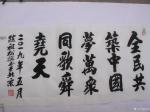 全民共
築中國
夢萬衆
同歌舜
堯天
二〇一九年五月